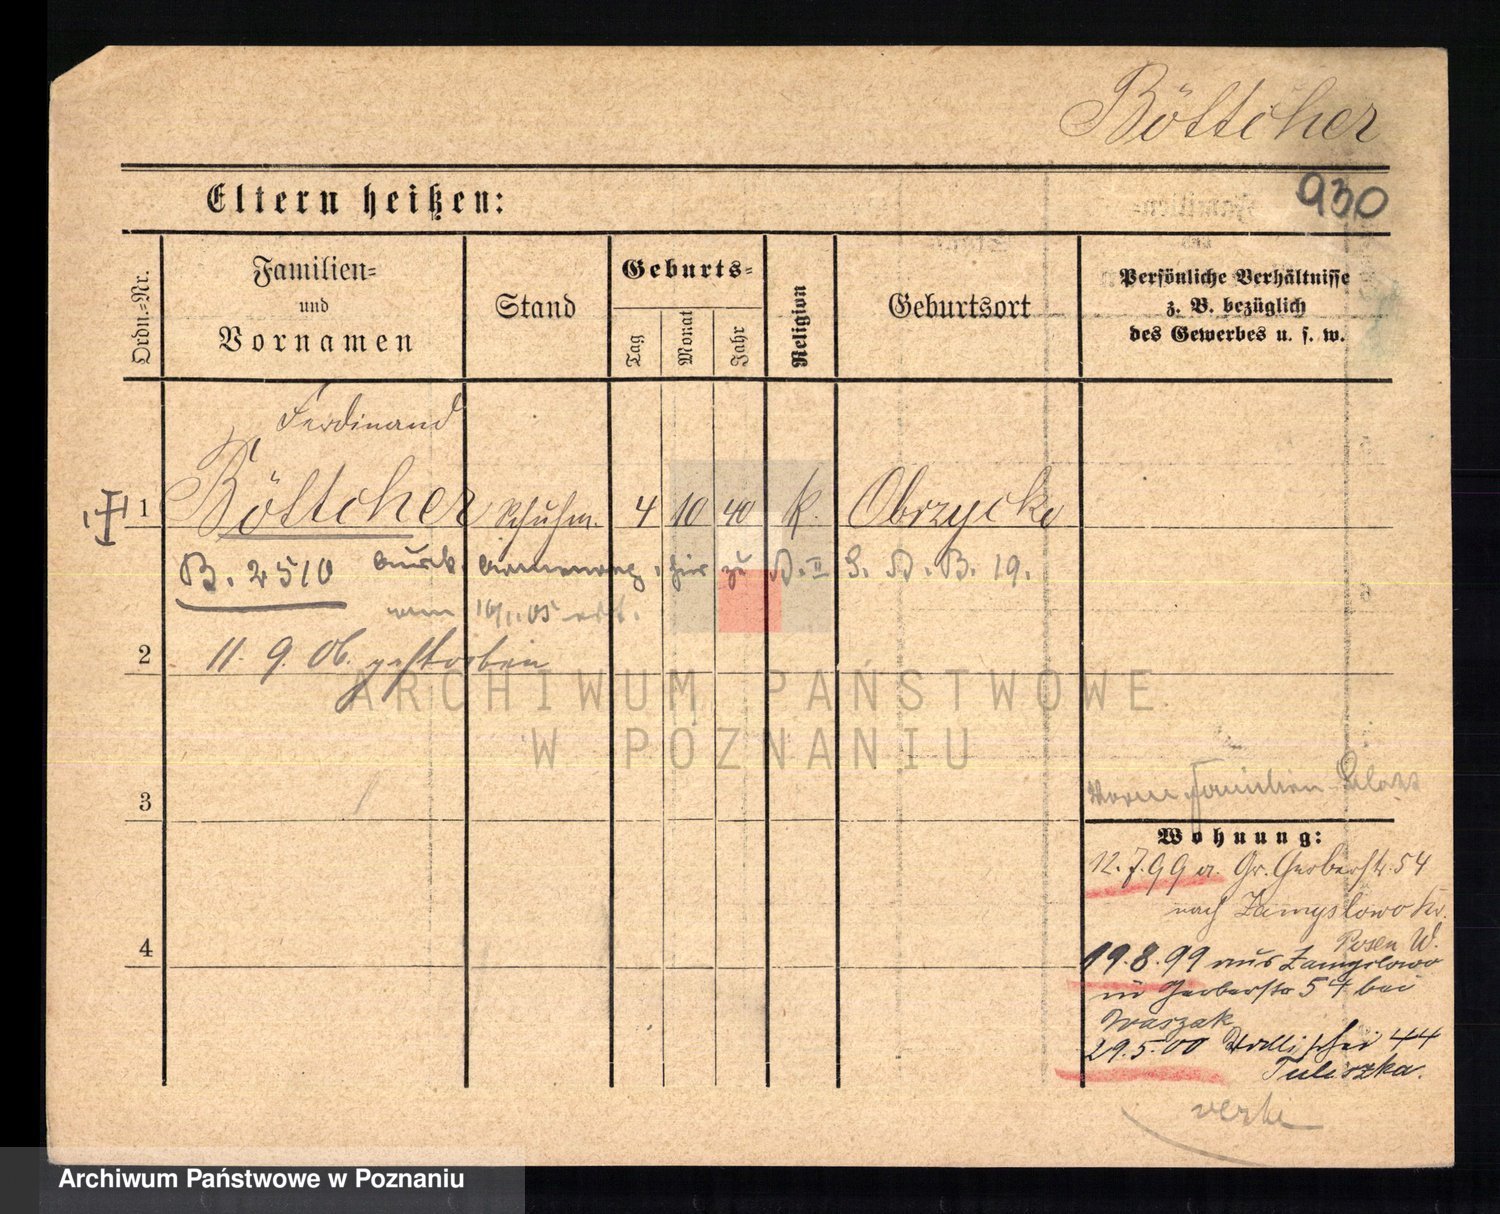 Böttcher
930
Eltern heißen:
Ordn.-Nr.
Familien-
und
Vornamen
Stand
Geburts-
Tag
Monat
Jahr
Religion
Geburtsort
Persönliche Verhältnisse
z. B. bezüglich
des Gewerbes u. s. w.
Ferdinand
1 Böttcher Schuhm. 4 10 40 k. Obrzycko
B. 2510 zu B. II G. B. 19.
vom 16/1.05
2 11. 9. 06. gestorben
3
4
Familien
Wohnung:
12.7.99 a. Gr. Gerberstr. 54
nach Zamyslowo Kr.
Posen W.
19.8.99 aus Zamyslowo
in Gerberstr 54 bei
Waszak
29.5.00 Wallischei 44
Tuliszka.
verte
ARCHIWUM PAŃSTWOWE
W POZNANIU
Archiwum Państwowe w Poznaniu